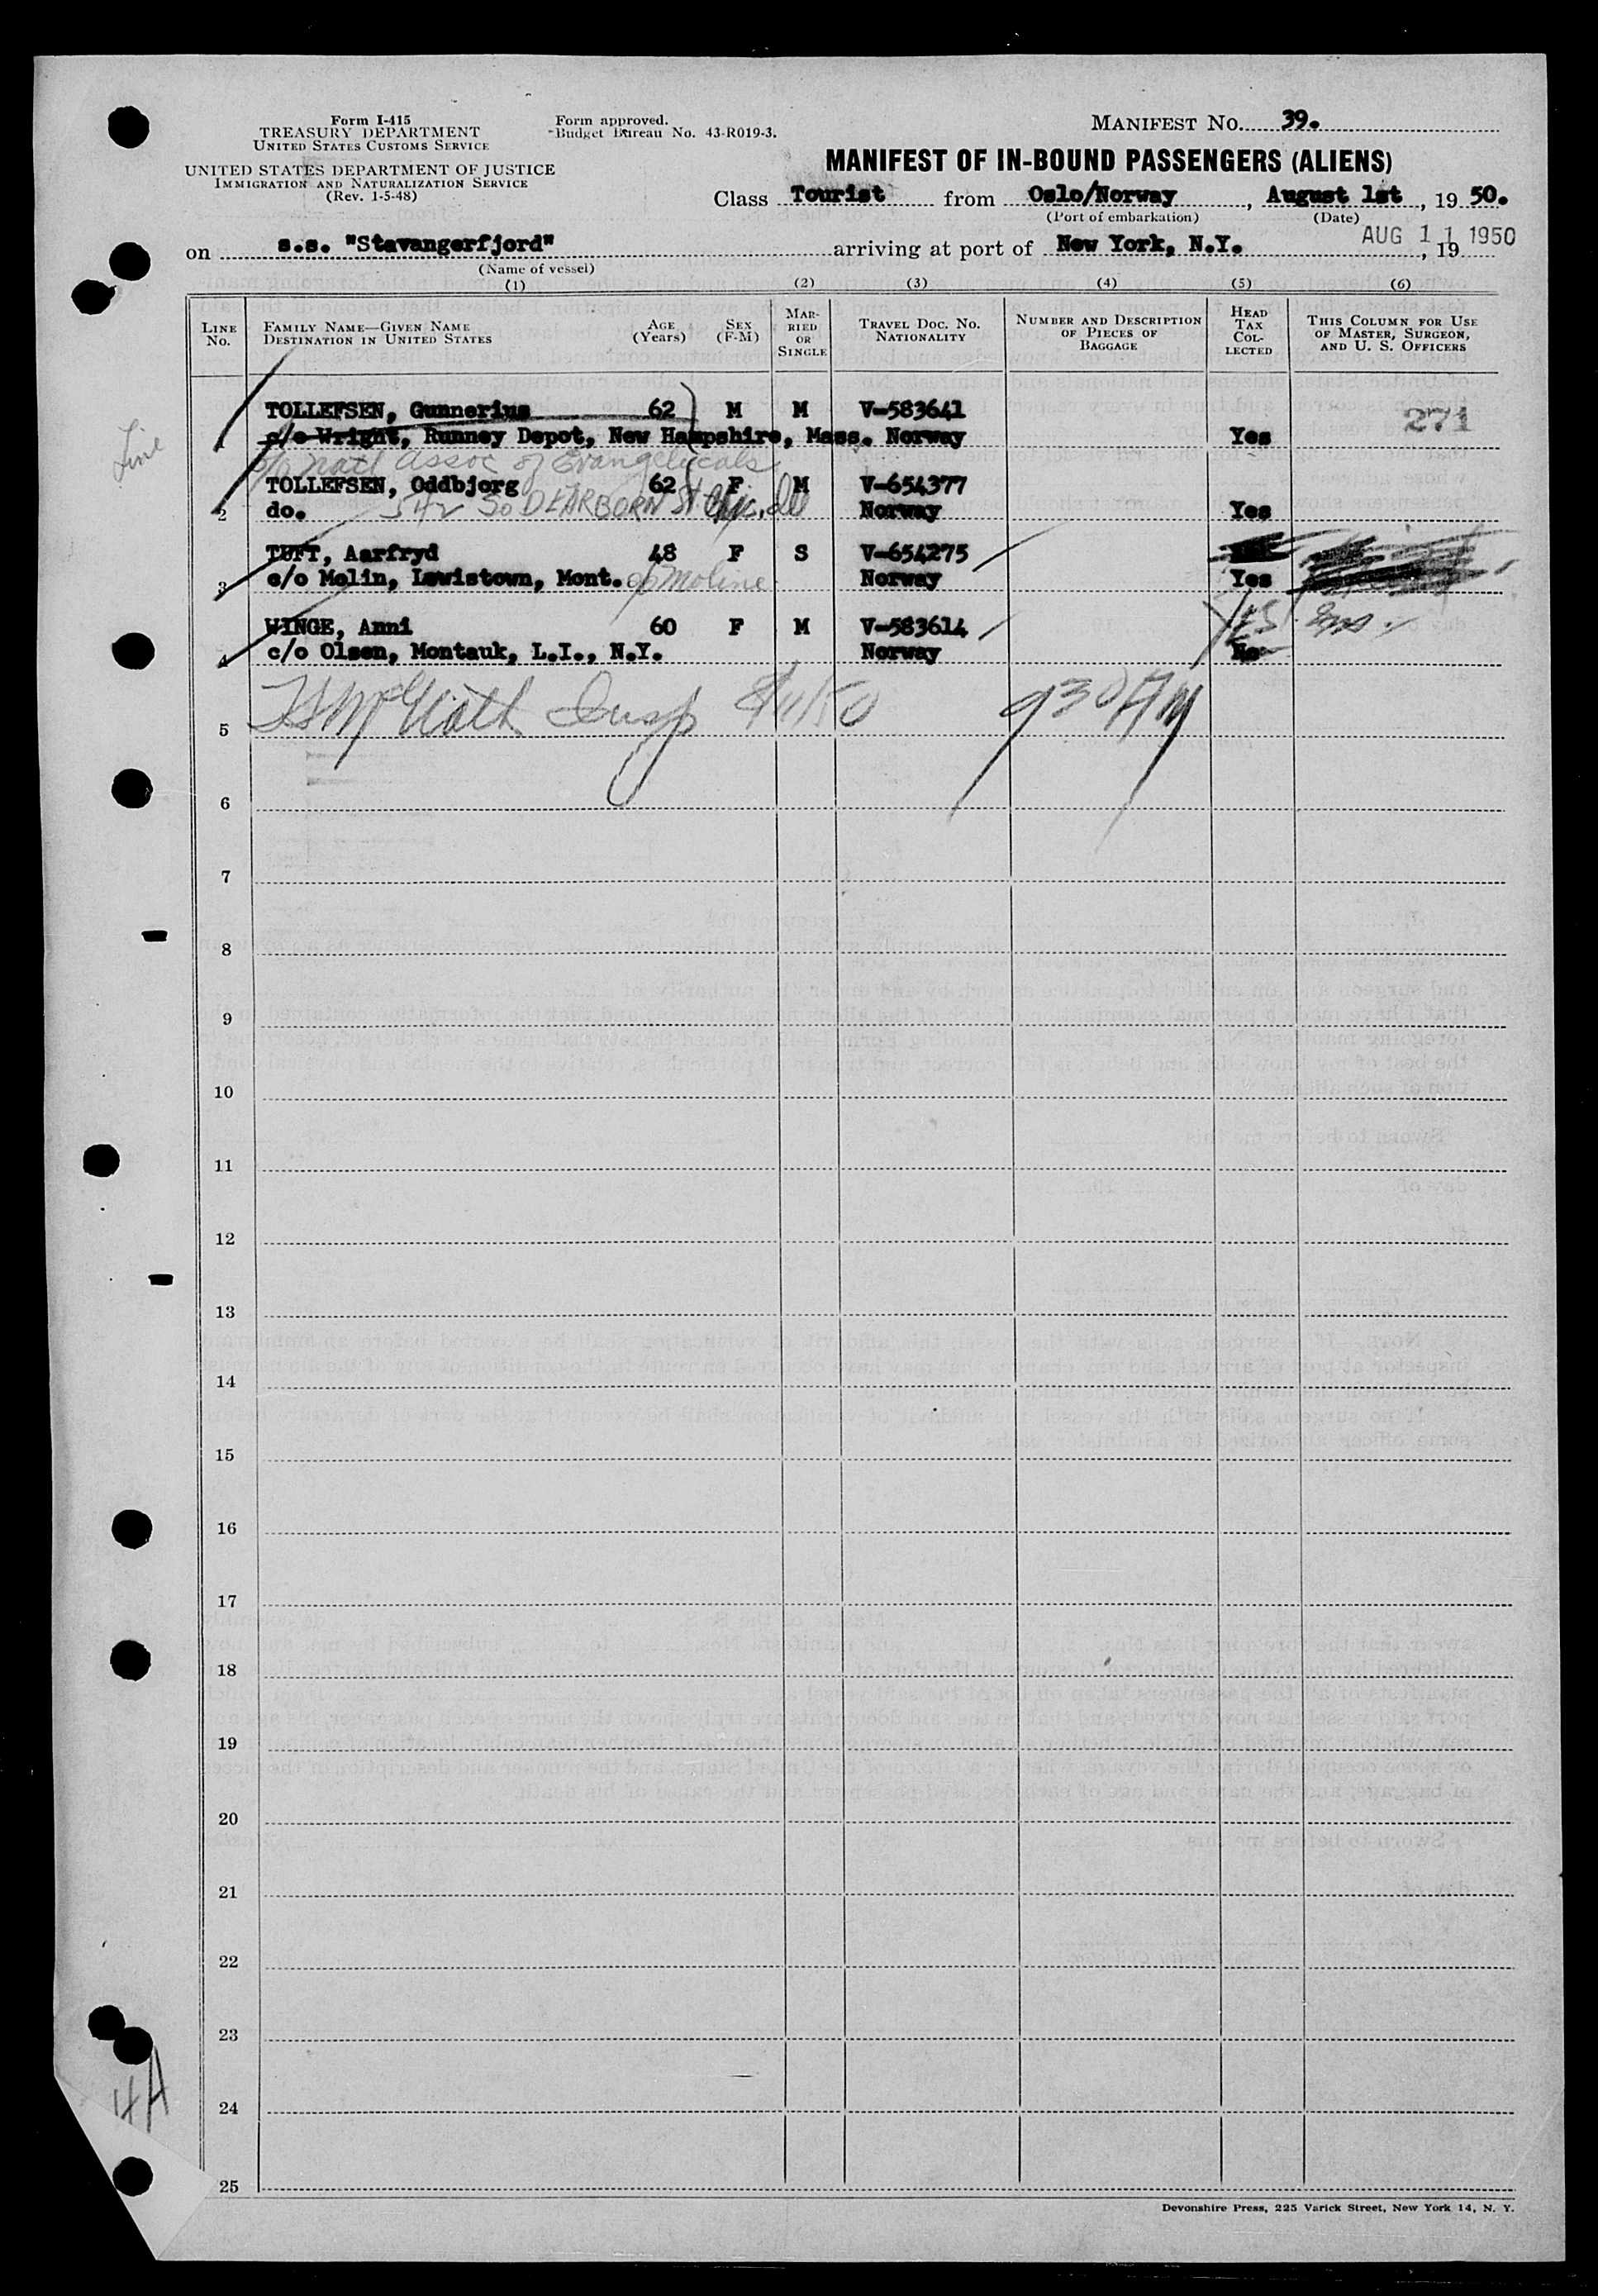 Form I-415
TREASURY DEPARTMENT
UNITED STATES CUSTOMS SERVICE
UNITED STATES DEPARTMENT OF JUSTICE
IMMIGRATION AND NATURALIZATION SERVICE
(Rev. 1-5-48)
Form approved.
Budget Bureau No. 43-R019-3.
MANIFEST NO. 39.
MANIFEST OF IN-BOUND PASSENGERS (ALIENS)
Class Tourist from Oslo/Norway, August 1st, 19 50.
(Port of embarkation) (Date)
on s.s. "Stavangerfjord" arriving at port of New York, N.Y. AUG 11 1950, 19
(Name of vessel)
(1) (2) (3) (4) (5) (6)
LINE NO. FAMILY NAME—GIVEN NAME DESTINATION IN UNITED STATES AGE (YEARS) SEX (F-M) MARRIED OR SINGLE TRAVEL DOC. NO. NATIONALITY NUMBER AND DESCRIPTION OF PIECES OF BAGGAGE HEAD TAX COLLECTED THIS COLUMN FOR USE OF MASTER, SURGEON, AND U. S. OFFICERS
Line
TOLLEFSEN, Gunnerius 62 M M V-583641 271
c/o Wright, Runney Depot, New Hampshire, Mass. Norway Yes
c/o Natl Assoc of Evangelicals
TOLLEFSEN, Oddbjorg 62 F M V-654377
2 do. 542 So DEARBORN St Chic, Ill Norway Yes
TUFT, Aarfryd 48 F S V-654275
3 c/o Molin, Lewistown, Mont. c/o Moline Norway Yes
WINGE, Anni 60 F M V-583614 YES
4 c/o Olsen, Montauk, L.I., N.Y. Norway No
5 Insp 8/11/50 930 AM
6
7
8
9
10
11
12
13
14
15
16
17
18
19
20
21
22
23
24
25
4A
Devonshire Press, 225 Varick Street, New York 14, N. Y.